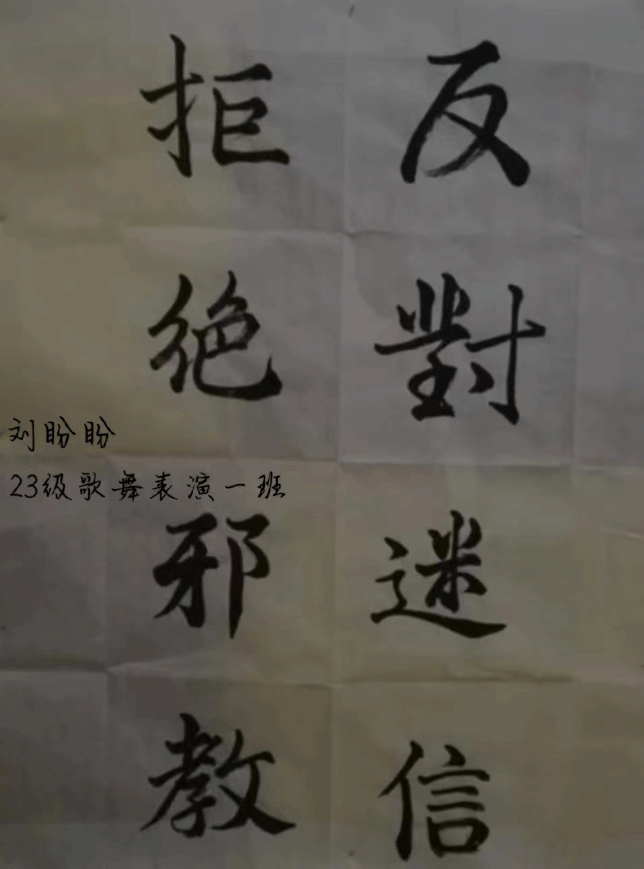 反對迷信
拒绝邪教
刘盼盼
23级歌舞表演一班